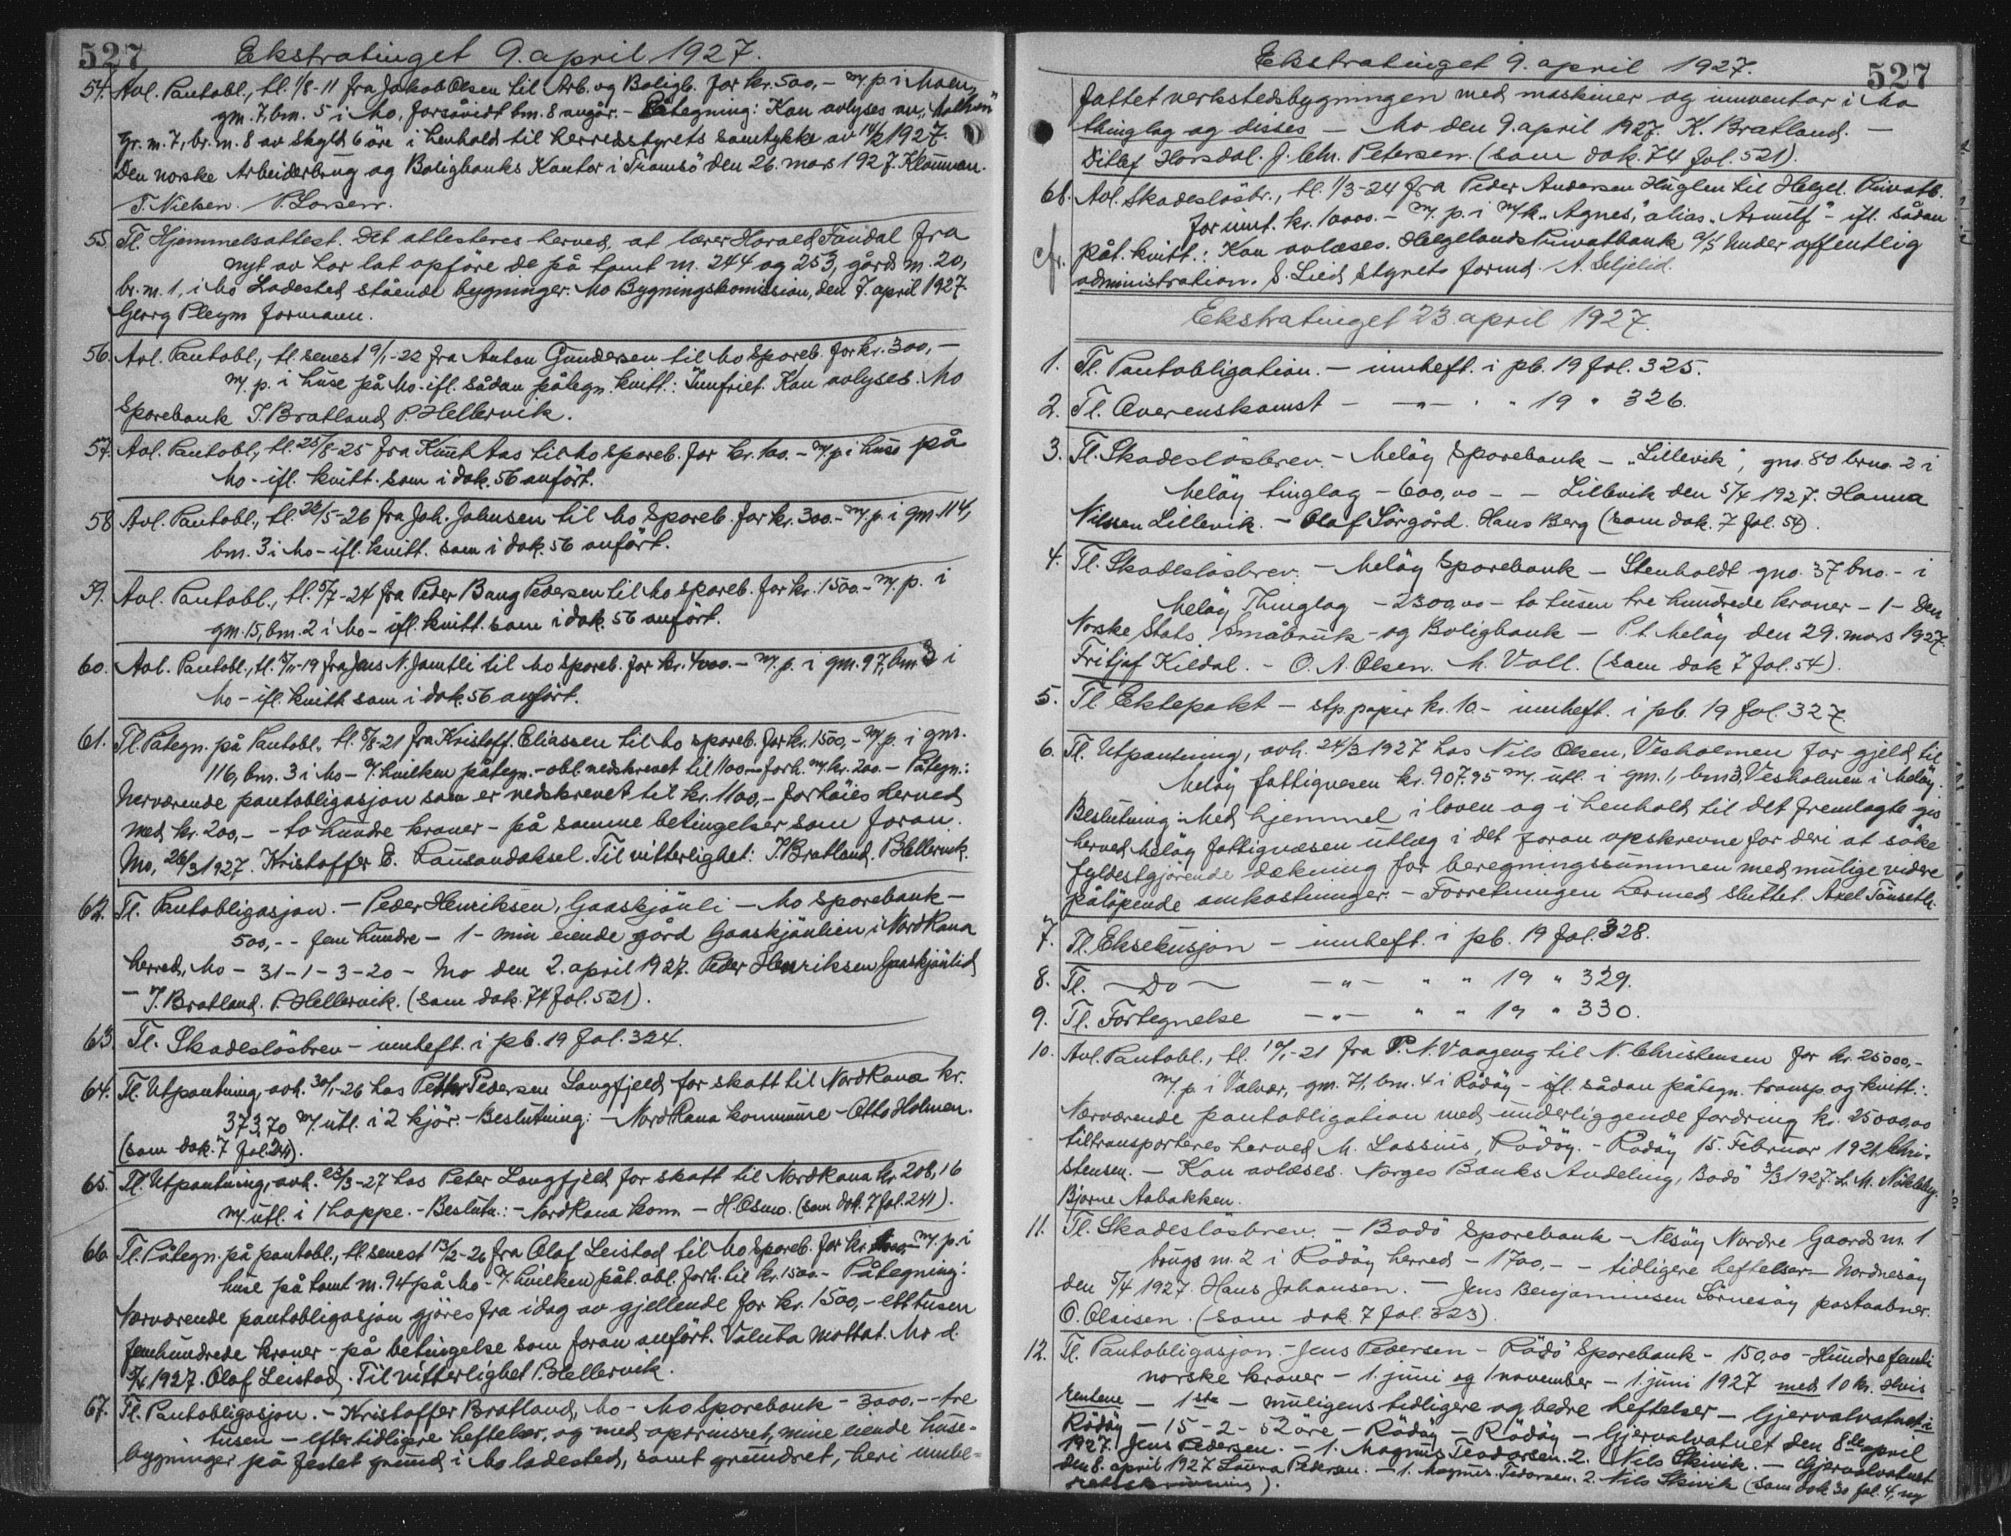 527 Ekstratinget 9. april 1927.
54. Avl. Pantobl., tl. 1/8-11 fra Jakob Olsen til Arb. og Boligb. for kr. 500,- m/ p. i Moen,
gnr. 7, bnr. 5 i Mo, forsåvidt bnr. 8 angår. - Påtegning: Kan avlyses av
gr. nr. 7, br. nr. 8 av skyld 6 öre i henhold til herredsstyrets samtykke av 14/2 1927.
Den norske Arbeiderbrug og Boligbanks Kontor i Tromsö den 26. mars 1927. Klouman.
T. Nielsen. P. Larsen.
55. Tl. Hjemmelsattest. Det attesteres herved, at lærer Harald Faudal fra
nyt av har lat opföre de på tomt nr. 244 og 253, gårds nr. 20,
br. nr. 1, i Mo Ladested stående bygninger. Mo Bygningskomission, den 7. april 1927
Georg Pleym formann.
56. Avl. Pantobl., tl. senest 9/1-22 fra Anton Gundersen til Mo Spareb. for kr. 300,-
m/ p. i huse på Mo - ifl. sådan påtegn. kvitt.: Innfriet. Kan avlyses. Mo
Sparebank J. Bratland P. Hellervik.
57. Avl. Pantobl., tl. 25/8-25 fra Knut Aas til Mo spareb. for kr. 100.- m/ p. i huse på
Mo - ifl. kvitt. som i dok. 56 anfört.
58 Avl. Pantobl., tl. 22/5-26 fra Joh. Johnsen til Mo Spareb. for kr. 300.- m/ p. i gnr. 114,
bnr. 3 i Mo - ifl. kvitt. som i dok. 56 anfört.
59. Avl. Pantobl., tl. 5/7-24 fra Peder Bang Pedersen til Mo spareb. for kr. 1500.- m/ p. i
gnr. 15, bnr. 2 i Mo - ifl. kvitt. som i dok. 56 anfört.
60. Avl. Pantobl., tl. 5/11-19 fra Jens N. Jamtli til Mo Spareb. for kr. 4000.- m/ p. i gnr. 97, bnr. 3 i
Mo - ifl. kvitt som i dok. 56 anfört.
61. Tl. Påtegn. på Pantobl. tl. 5/8-21 fra Kristoff. Eliassen til Mo spareb. for kr. 1500,- m/ p. i gnr.
116, bnr. 3 i Mo - v/ hvilken påtegn. - obl. nedskrevet til 1100.- forh. m/ kr. 200.- Påtegn.:
Nærværende pantobligasjon som er nedskrevet til kr. 1100,- forhöies herved
med kr. 200,- - to hundre kroner - på samme betingelser som foran.
Mo, 26/3 1927. Kristoffer E. Lausandaksel. Til vitterlighet: J. Bratland. P. Hellervik.
62. Tl. Pantobligasjon. - Peder Henriksen, Gaaskjönli - Mo sparebank -
500,- - fem hundre - 1 - min eiende gård Gaaskjönlien i Nord Rana
herred, Mo - 31 - 1 - 3 - 20 - Mo den 2. april 1927. Peder Henriksen Gaaskjönlid
- J. Bratland. P. Hellervik. (som dok. 74 fol. 521).
63. Tl. Skadeslösbrev - innheft. i pb. 19 fol. 324.
64. Tl. Utpantning, avh. 30/1-26 hos Petter Pedersen Langfjeld for skatt til Nord Rana kr.
373,70 m/ utl. i 2 kjör. - Beslutning: - Nord Rana kommune - Otto Holmen.
(som dok. 7 fol. 241).
65. Tl. Utpantning, avh. 23/3-27 hos Peter Langfjeld for skatt til Nord Rana kr. 208,16
m/ utl. i 1 hoppe. - Beslutn.: - Nord Rana kom - H. Osmo. (som dok. 7 fol. 241).
66. Tl. Påtegn. på pantobl., tl. senest 13/2-26 fra Olaf Leistad til Mo Spareb. for kr. m/ p. i
huse på tomt nr. 94 på Mo - v/ hvilken påt. obl. forh. til kr. 1500.- Påtegning:
Nærværende pantobligasjon gjöres fra idag av gjellende for kr. 1500,- ett tusen
femhundrede kroner - på betingelse som foran anfört. Valuta mottat. Mo d.
5/4 1927. Olaf Leistad. Til vitterlighet P. Hellervik.
67. Tl. Pantobligasjon. - Kristoffer Bratland, Mo - Mo Sparebank - 3000.- - tre
tusen - efter tidligere heftelser, og med oprinsret, mine eiende huse-
bygninger på festet grund i Mo ladested, samt grundret, heri innbe-
Ekstratinget 9. april 1927. 527
fattet verkstedsbygningen med maskiner og inventar i Mo
thinglag og disses - Mo den 9. april 1927. K. Bratland. -
Ditlef Horsdal. J. Chr. Petersen. (som dok. 74 fol. 521).
68. Avl. Skadeslösbr., tl. 1/3-24 fra Peder Andersen Huglen til Helgel. Privatb.
for innt. kr. 10000.- m/ p. i m/k. "Agnes", alias "Arnulf" - ifl. sådan
cfr. påt. kvitt.: Kan avlæses. Helgelands Privatbank A/S Under offentlig
administration. S. Lied styrets formd. A. Seljelid.
Ekstratinget 23 april 1927.
1. Tl. Pantobligation. - innheft. i pb. 19 fol. 325.
2. Tl. Overenskomst - -"- " " 19 " 326.
3. Tl. Skadeslösbrev. - Melöy Sparebank - "Lillevik", gno. 80 brno. 2 i
Melöy tinglag - 600,00 - - Lillevik den 5/4 1927. Hanna
Nilssen Lillevik. - Olaf Sörgård. Hans Berg (som dok. 7 fol. 54).
4. Tl. Skadeslösbrev. - Melöy Sparebank - Stenholdt gno. 37 bno. - i
Melöy Thinglag - 2300,00 - to tusen tre hundrede kroner - 1 - Den
Norske Stats Småbruk- og Boligbank - P.t. Melöy den 29. mars 1927.
Fritjof Kildal. - O. A. Olsen. M. Voll. (som dok 7 fol. 54).
5. Tl Ektepakt - stp. papir kr. 10.- innheft. i pb. 19 fol. 327.
6. Tl. Utpantning, avh. 24/3 1927 hos Nils Olsen, Vesholmen for gjeld til
Melöy fattigvesen kr. 907.95 m/ utl. i gnr. 1, bnr. 3, Vesholmen i Melöy.
Beslutning: Med hjemmel i loven og i henhold til det fremlagte gis
herved Melöy fattigvæsen utlæg i det foran opskrevne for deri at söke
fyldestgjörende dækning for beregningssummen med mulige videre
påløpende omkostninger. - Forretningen hermed sluttet. Axel Tönseth.
7. Tl. Eksekusjon - innheft. i pb. 19 fol. 328.
8. Tl. - Do - -"- " " 19 " 329.
9. Tl. Fortegnelse -"- " " 19 " 330.
10. Avl. Pantobl., tl. 10/1-21 fra P. N. Vaageng til N. Christensen for kr. 25000,-
m/ p. i Valvær, gnr. 71, bnr. 4 i Rödöy - ifl. sådan påtegn. transp. og kvitt.:
Nærværende pantobligation med underliggende fordring kr. 25000,00
tiltransporteres herved M. Lassius, Rödöy. - Rödöy 15. Februar 1921. Chri-
stensen. - Kan avlæses. Norges Banks Avdeling, Bodö 3/3 1927. L. M. Nikelsby.
Bjarne Aabakken.
11. Tl. Skadeslösbrev. - Bodö Sparebank - Nesöy Nordre Gaards nr. 1
brugs nr. 2 i Rödöy herred - 1700,- - tidligere heftelser - Nordnesöy
den 5/4 1927. Hans Johansen. - Jens Benjaminsen Sörnesöy postaabner.
O. Olaisen. (som dok. 7 fol. 323).
12. Tl. Pantobligasjon. - Jens Pedersen - Rödö Sparebank - 150,00 - Hundrefemti
norske kroner - 1. juni og 1 november - 1. juni 1927 med 10 kr. Hvis
rentene - 1ste - muligens tidligere og bedre heftelser - Gjervalvatnet i
Rödöy - 15 - 2 - 52 öre - Rödöy - Rödöy - Gjervalvatnet den 8de april
1927. Jens Pedersen. - 1. Magnus Teodorsen. 2. Nils Skivik. - Gjervalvatnet
den 8. april 1927 Laura Pedersen. - 1. Magnus Tedorsen. 2. Nils Skivik (som dok 30 fol. 4, ny